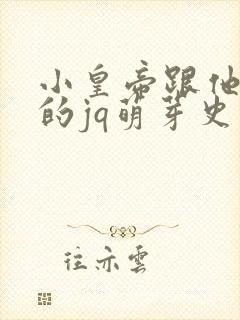 小皇帝跟他
的jq萌芽史
往亦雲